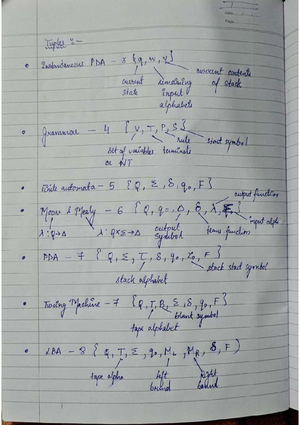 Tuples :-
• Instantaneous PDA - 3 {q, w, γ}
current state
remaining Input alphabets
current contents of stack
• Grammar - 4 {V, T, P, S}
set of variables or NT
terminals
rule
start symbol
• Finite automata - 5 {Q, Σ, δ, q₀, F}
• Moore & Mealy - 6 {Q, q₀, Δ, δ, λ, Σ}
output function
λ: Q→Δ
λ: Q×Σ→Δ
output symbol
trans function
input alpha
• PDA - 7 {Q, Σ, T, δ, q₀, Z₀, F}
stack alphabet
stack start symbol
• Turing Machine - 7 {Q, T, B, Σ, δ, q₀, F}
blank symbol
tape alphabet
• LBA - 8 {Q, T, Σ, q₀, M_L, M_R, δ, F)
tape alpha
left bound
right bound